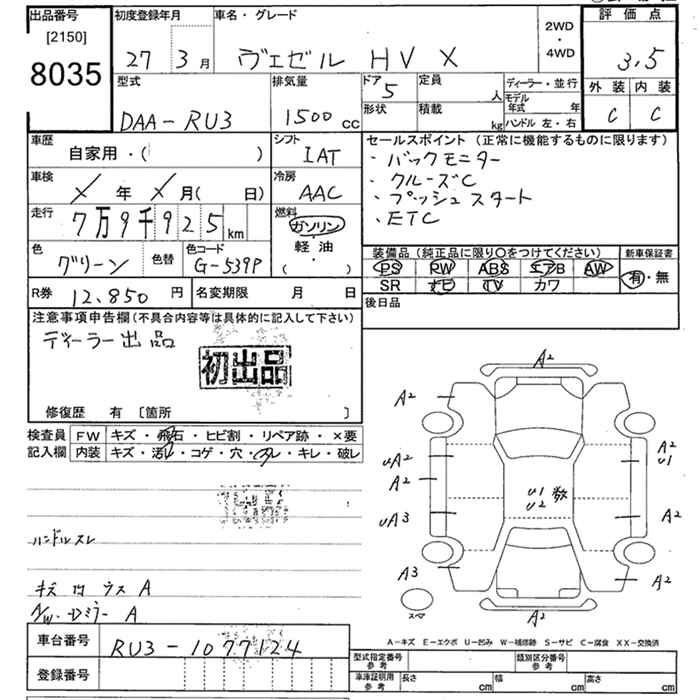 出品番号 初度登録年月 車名・グレード 2WD・4WD 評価点
[2150]
8035
27年 3月 ヴェゼル HV X 3.5
型式 排気量 ドア 5 定員 人 ディーラー・並行 外装 内装
DAA-RU3 1500cc 形状 積載 kg モデル年式 年 ハンドル 左・右 C C
車歴 自家用・( ) シフト IAT
セールスポイント (正常に機能するものに限ります)
・バックモニター
・クルーズC
・プッシュスタート
・ETC
車検 × 年 × 月( 日) 冷房 AAC
走行 7万9千925km 燃料 ガソリン・軽油・( )
色 グリーン 色替 色コード G-539P
装備品 (純正品に限り○をつけてください) 新車保証書
PS PW ABS エアB AW 有・無
SR ナビ TV カワ
R券 12,850円 名変期限 月 日
後日品
注意事項申告欄(不具合内容等は具体的に記入して下さい)
ディーラー出品
初出品
修復歴 有 [箇所 ]
検査員記入欄 FW キズ・飛石・ヒビ割・リペア跡・×要
内装 キズ・汚レ・コゲ・穴・スレ・キレ・破レ
ハンドルスレ
A/W・Dミラー A
車台番号 RU3-1077124
登録番号
A2
A2
A2
U1
UA2
A2
U1 数
U2
UA3
A2
A3
A2
スペア
A2
A-キズ E-エクボ U-凹み W-補修跡 S-サビ C-腐食 XX-交換済
型式指定番号 参考 類別区分番号 参考
車庫証明用 参考 長さ cm 幅 cm 高さ cm